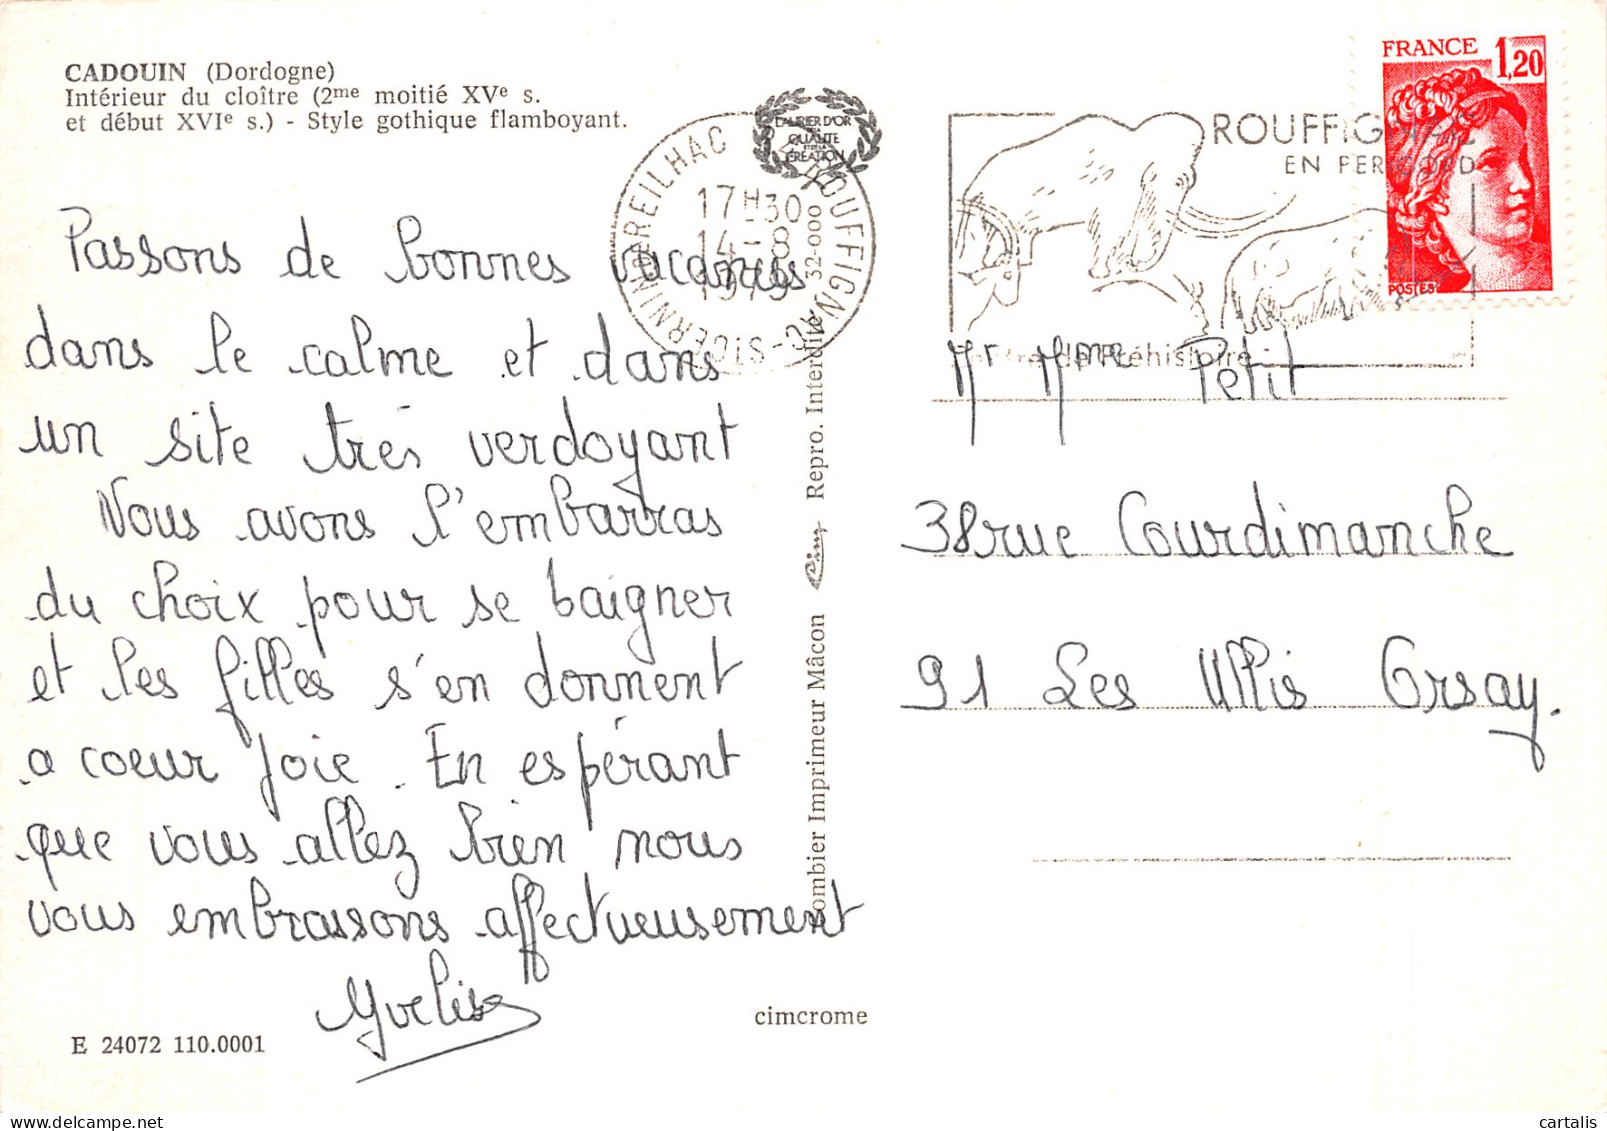 CADOUIN (Dordogne)
Intérieur du cloître (2me moitié XVe s.
et début XVIe s.) - Style gothique flamboyant.
LAURIER D'OR
QUALITÉ
ET DE LA
CRÉATION
17H30
14-8
1979
ROUFFIGNAC
EN PERIGORD
Centre de Préhistoire
FRANCE 1,20
POSTES
Passons de bonnes vacances
dans le calme et dans
un site très verdoyant
Nous avons l'embarras
du choix pour se baigner
et les filles s'en donnent
a coeur joie. En espérant
que vous allez bien nous
vous embrassons affectueusement
Yvelise
Combier Imprimeur Mâcon Cim Repro. Interdite 32-000
Mr Mme Petit
38 rue Courdimanche
91 Les Ullis Orsay.
E 24072 110.0001
cimcrome
cartalis
© cartalis delcampe.net